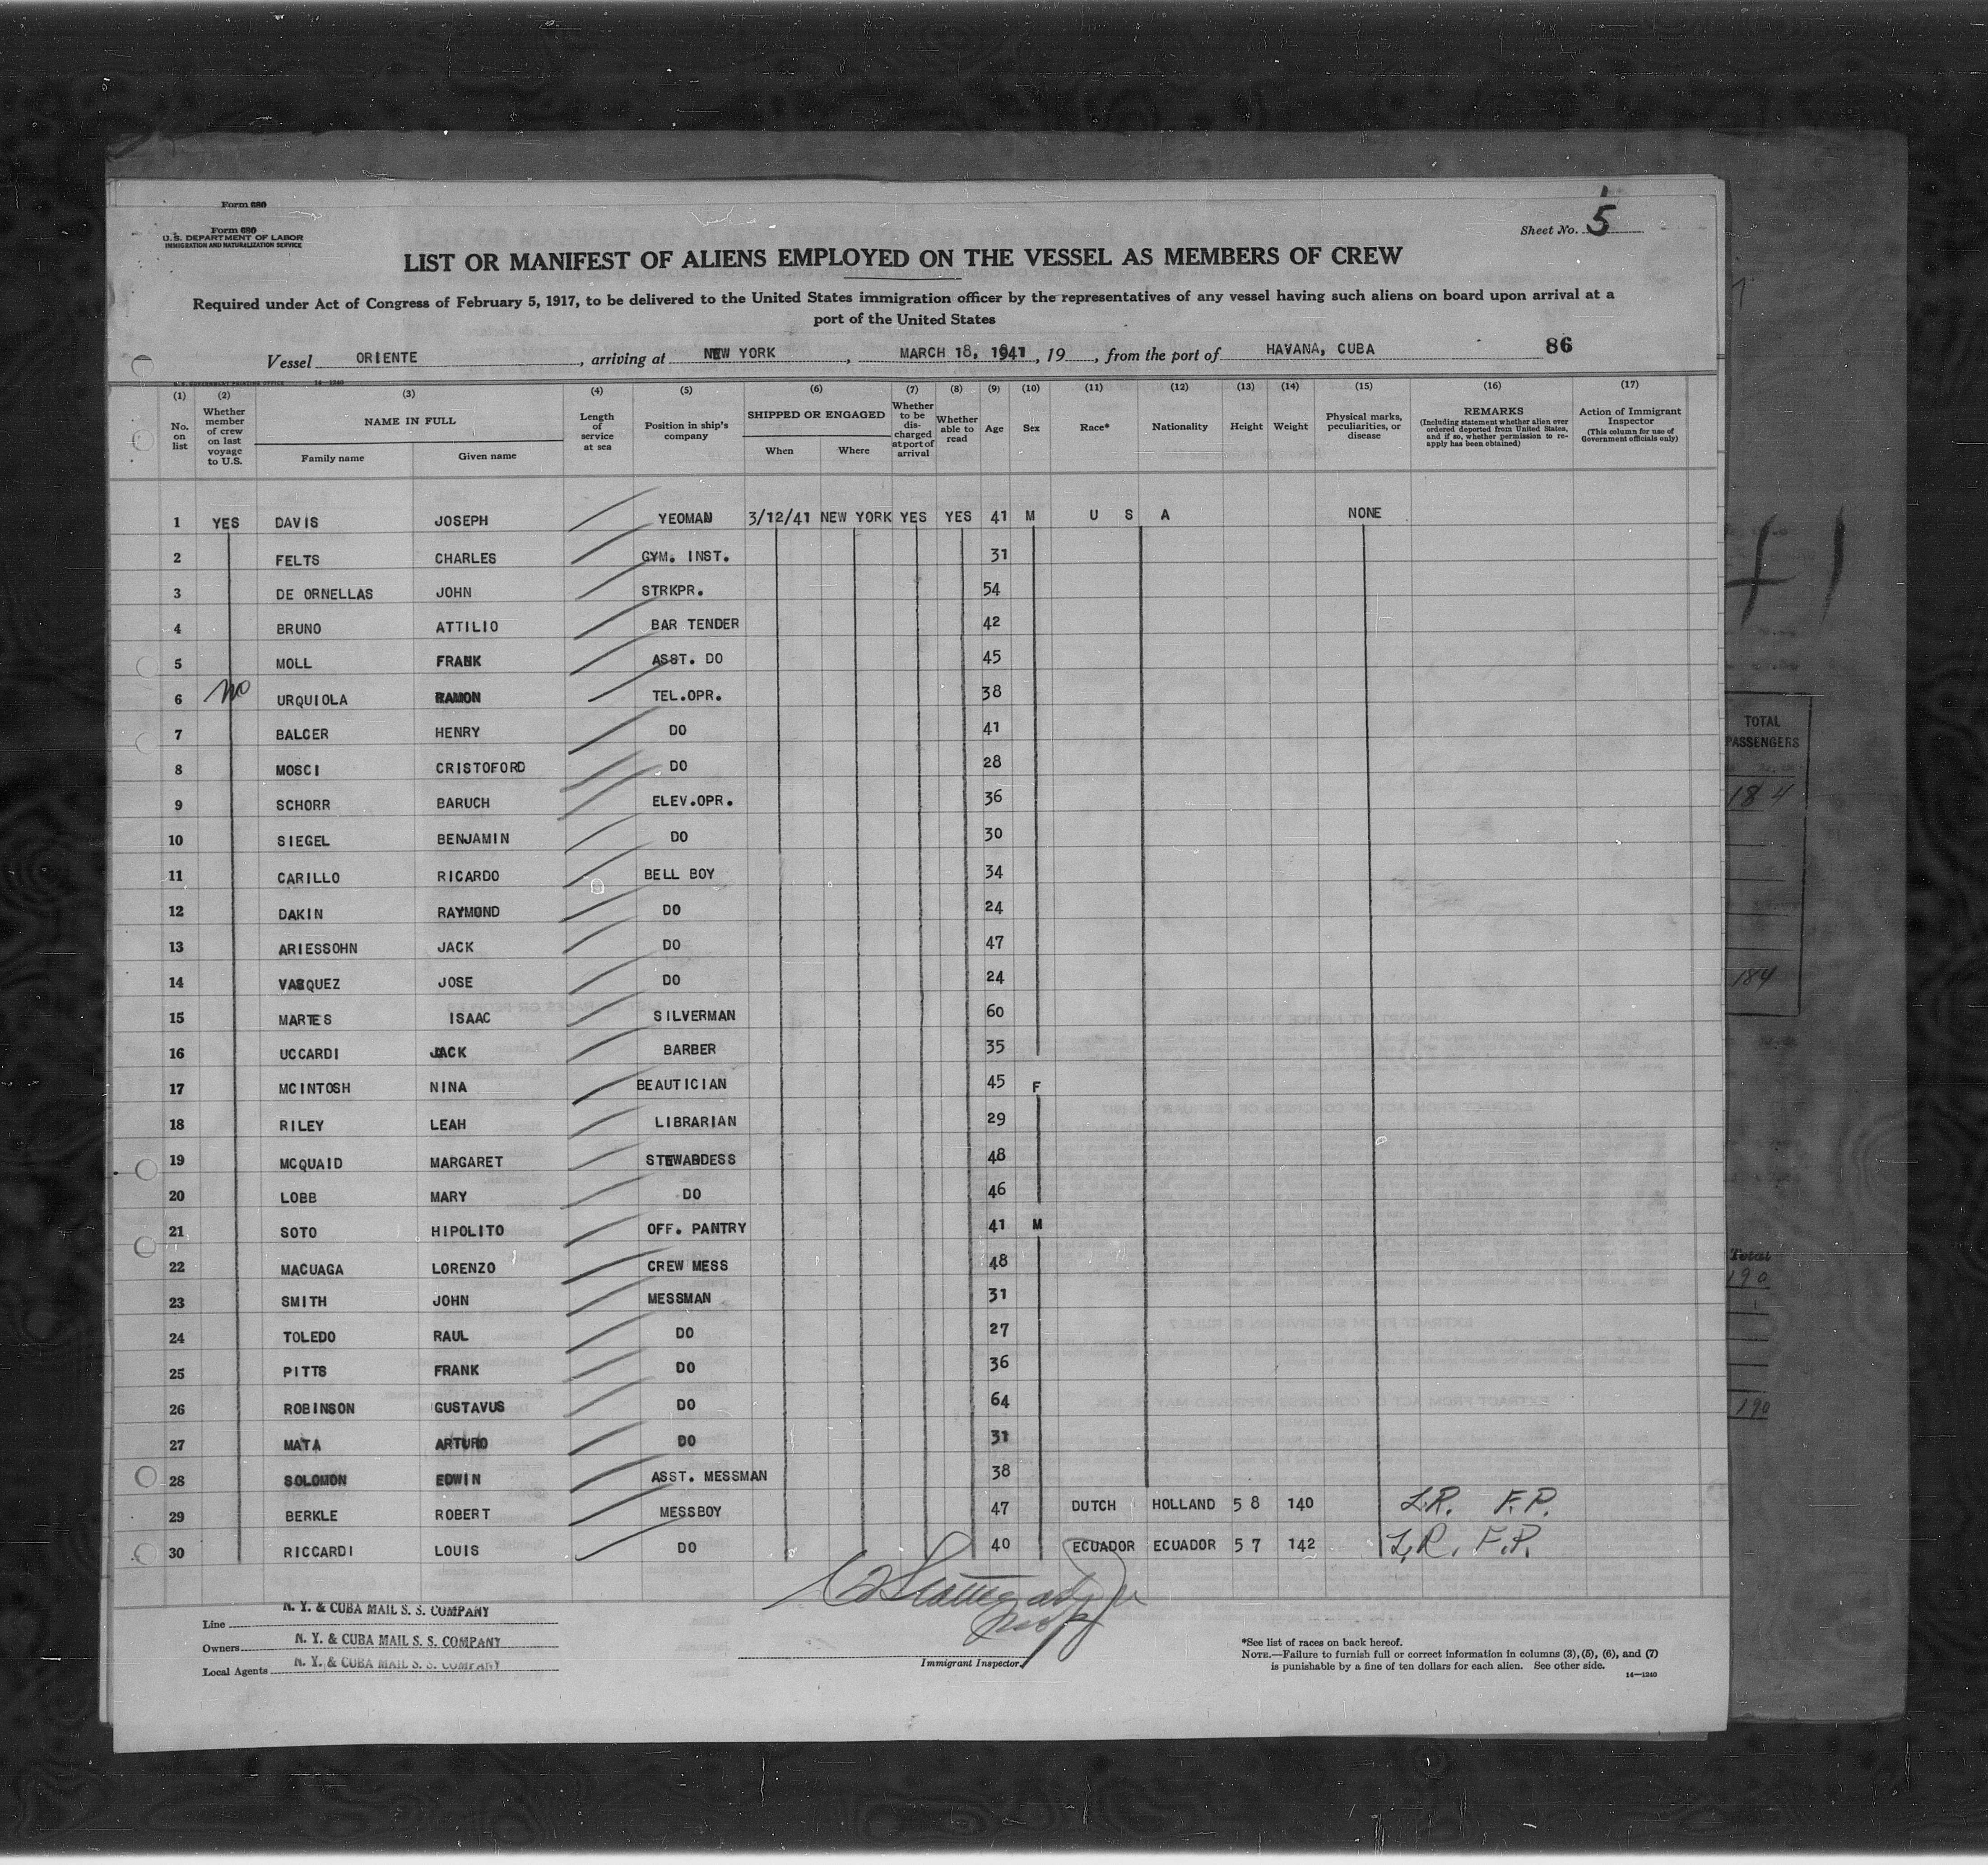 Form 680
Form 680
U.S. DEPARTMENT OF LABOR
IMMIGRATION AND NATURALIZATION SERVICE
Sheet No. 5
LIST OR MANIFEST OF ALIENS EMPLOYED ON THE VESSEL AS MEMBERS OF CREW
Required under Act of Congress of February 5, 1917, to be delivered to the United States immigration officer by the representatives of any vessel having such aliens on board upon arrival at a
port of the United States
Vessel ORIENTE, arriving at NEW YORK, MARCH 18, 1941, 19, from the port of HAVANA, CUBA 86
U. S. GOVERNMENT PRINTING OFFICE 14-1240
(1) No. on list
(2) Whether member of crew on last voyage to U.S.
(3) NAME IN FULL Family name Given name
(4) Length of service at sea
(5) Position in ship's company
(6) SHIPPED OR ENGAGED When Where
(7) Whether to be discharged at port of arrival
(8) Whether able to read
(9) Age
(10) Sex
(11) Race*
(12) Nationality
(13) Height
(14) Weight
(15) Physical marks, peculiarities, or disease
(16) REMARKS (Including statement whether alien ever ordered deported from United States, and if so, whether permission to reapply has been obtained)
(17) Action of Immigrant Inspector (This column for use of Government officials only)
1 YES DAVIS JOSEPH YEOMAN 3/12/41 NEW YORK YES YES 41 M U S A NONE
2 FELTS CHARLES GYM. INST. 31
3 DE ORNELLAS JOHN STRKPR. 54
4 BRUNO ATTILIO BAR TENDER 42
5 MOLL FRANK ASST. DO 45
6 no URQUIOLA RAMON TEL.OPR. 38
7 BALCER HENRY DO 41
8 MOSCI CRISTOFORD DO 28
9 SCHORR BARUCH ELEV.OPR. 36
10 SIEGEL BENJAMIN DO 30
11 CARILLO RICARDO BELL BOY 34
12 DAKIN RAYMOND DO 24
13 ARIESSOHN JACK DO 47
14 VASQUEZ JOSE DO 24
15 MARTES ISAAC SILVERMAN 60
16 UCCARDI JACK BARBER 35
17 MCINTOSH NINA BEAUTICIAN 45 F
18 RILEY LEAH LIBRARIAN 29
19 MCQUAID MARGARET STEWARDESS 48
20 LOBB MARY DO 46
21 SOTO HIPOLITO OFF. PANTRY 41 M
22 MACUAGA LORENZO CREW MESS 48
23 SMITH JOHN MESSMAN 31
24 TOLEDO RAUL DO 27
25 PITTS FRANK DO 36
26 ROBINSON GUSTAVUS DO 64
27 MATA ARTURO DO 31
28 SOLOMON EDWIN ASST. MESSMAN 38
29 BERKLE ROBERT MESSBOY 47 DUTCH HOLLAND 5 8 140 L.R. F.P.
30 RICCARDI LOUIS DO 40 ECUADOR ECUADOR 5 7 142 L.R. F.P.
Line N. Y. & CUBA MAIL S. S. COMPANY
Owners N. Y. & CUBA MAIL S. S. COMPANY
Local Agents N. Y. & CUBA MAIL S. S. COMPANY
Immigrant Inspector.
*See list of races on back hereof.
NOTE.—Failure to furnish full or correct information in columns (3), (5), (6), and (7)
is punishable by a fine of ten dollars for each alien. See other side.
14—1240
TOTAL
PASSENGERS
184
184
Total
190
190